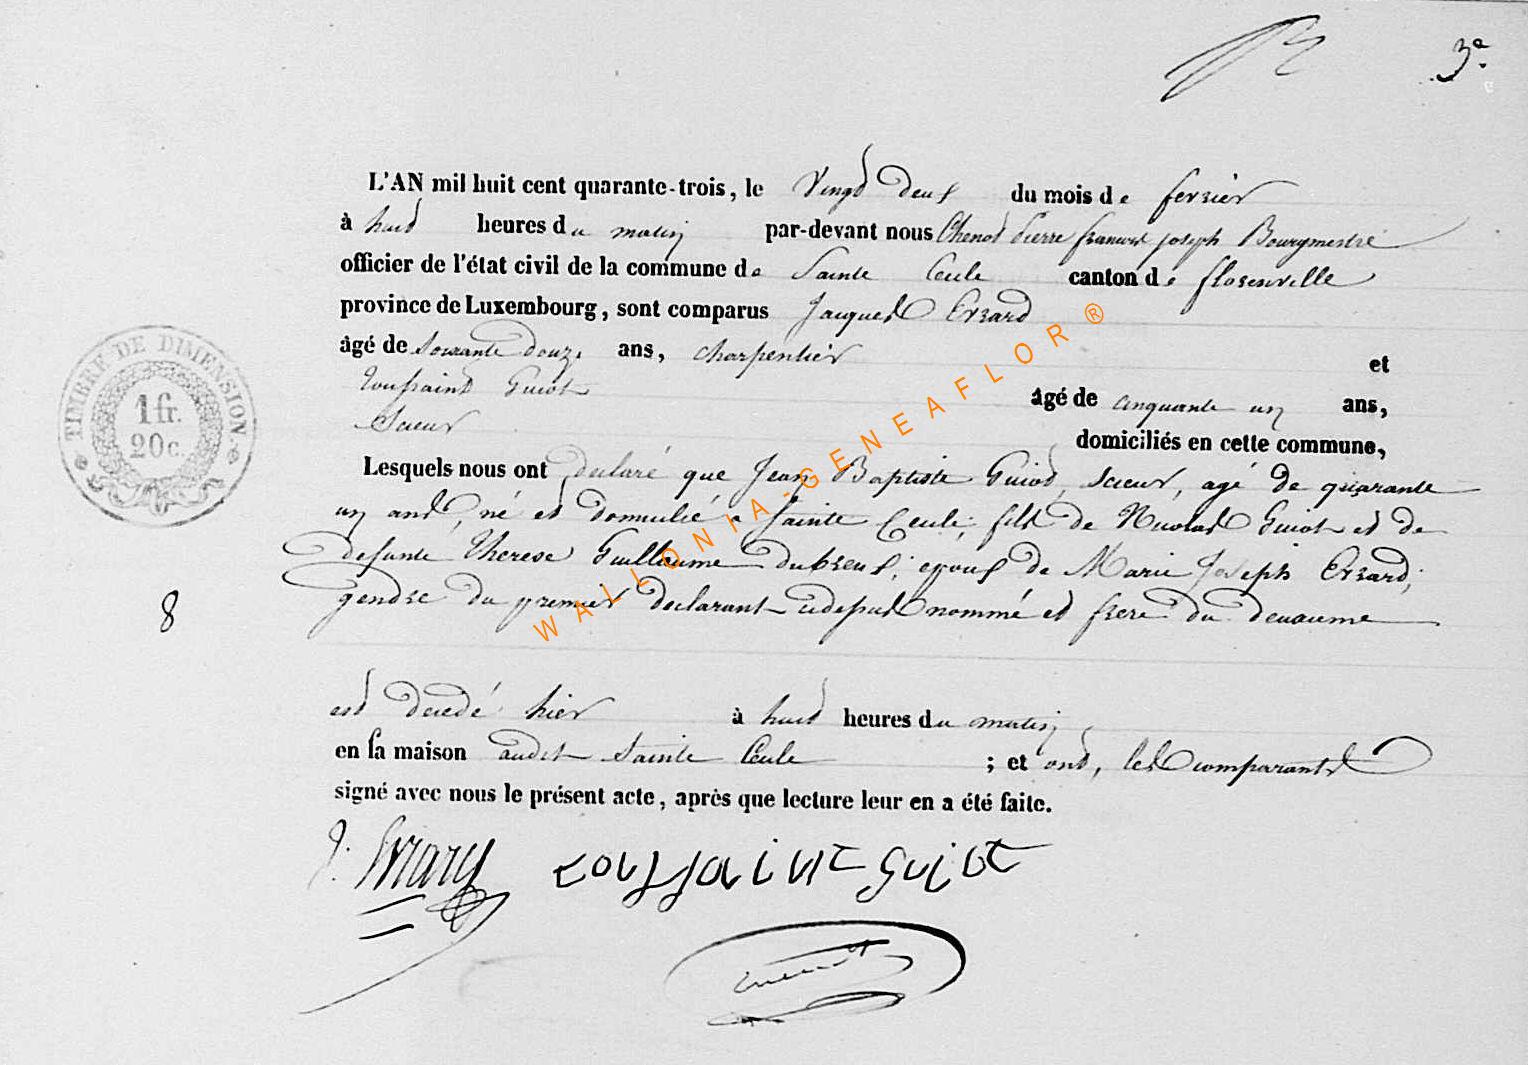 3e.
L'AN mil huit cent quarante-trois, le Vingt deux du mois de fevrier
à huit heures du matin par-devant nous Chenot Pierre francois joseph Bourgmestre
officier de l'état civil de la commune de Sainte Cecile canton de florenville
province de Luxembourg, sont comparus Jacques Evrard
âgé de Soixante douze ans, charpentier et
Toussaint Guiot âgé de cinquante un ans,
Scieur domiciliés en cette commune,
Lesquels nous ont declaré que Jean Baptiste Guiot, scieur, agé de quarante
un ans, né et domicilié a Sainte Cecile, fils de Nicolas Guiot et de
defunte Therese Guillaume dubreul, epous de Marie Joseph Evrard,
gendre du premier declarant cidepus nommé et frere du deuxieme
8
est decedé hier à huit heures du matin
en sa maison audit Sainte Cecile ; et ont, les comparants
signé avec nous le présent acte, après que lecture leur en a été faite.
J. Evrard toussaint guiot
TIMBRE DE DIMENSION.
1 fr.
20 c.
WALLONIA-GENEAFLOR ®